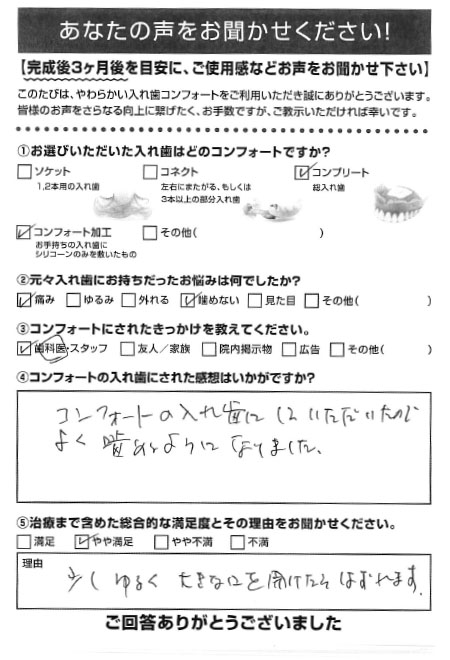 あなたの声をお聞かせください!
【完成後3ヶ月後を目安に、ご使用感などお声をお聞かせ下さい】
このたびは、やわらかい入れ歯コンフォートをご利用いただき誠にありがとうございます。
皆様のお声をさらなる向上に繋げたく、お手数ですが、ご教示いただければ幸いです。
①お選びいただいた入れ歯はどのコンフォートですか?
□ソケット □コネクト ☑コンプリート
1,2本用の入れ歯 左右にまたがる、もしくは 総入れ歯
3本以上の部分入れ歯
☑コンフォート加工 □その他( )
お手持ちの入れ歯に
シリコーンのみを敷いたもの
②元々入れ歯にお持ちだったお悩みは何でしたか?
☑痛み □ゆるみ □外れる ☑噛めない □見た目 □その他( )
③コンフォートにされたきっかけを教えてください。
☑歯科医・スタッフ □友人/家族 □院内掲示物 □広告 □その他( )
④コンフォートの入れ歯にされた感想はいかがですか?
コンフォートの入れ歯にしていただいたので
よく噛めるようになりました。
⑤治療まで含めた総合的な満足度とその理由をお聞かせください。
□満足 ☑やや満足 □やや不満 □不満
理由
少しゆるく大きな口を開けたらはずれます。
ご回答ありがとうございました